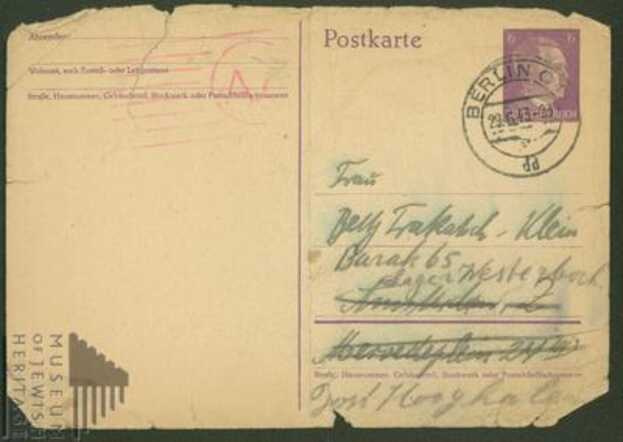 Absender:
Wohnort, auch Zustell- oder Leitpostamt
Straße, Hausnummer, Gebäudeteil, Stockwerk oder Postschließfachnummer
A
Postkarte
6 6
BERLIN C
29.6.43
pp
Frau
Betty Trakatsch - Klein
Barak 65
Lager Westerbork
Amsterdam, Z
Merwedeplein
Straße, Hausnummer, Gebäudeteil, Stockwerk oder Postschließfachnummer
Post Hooghalen
MUSEUM
OF JEWISH
HERITAGE